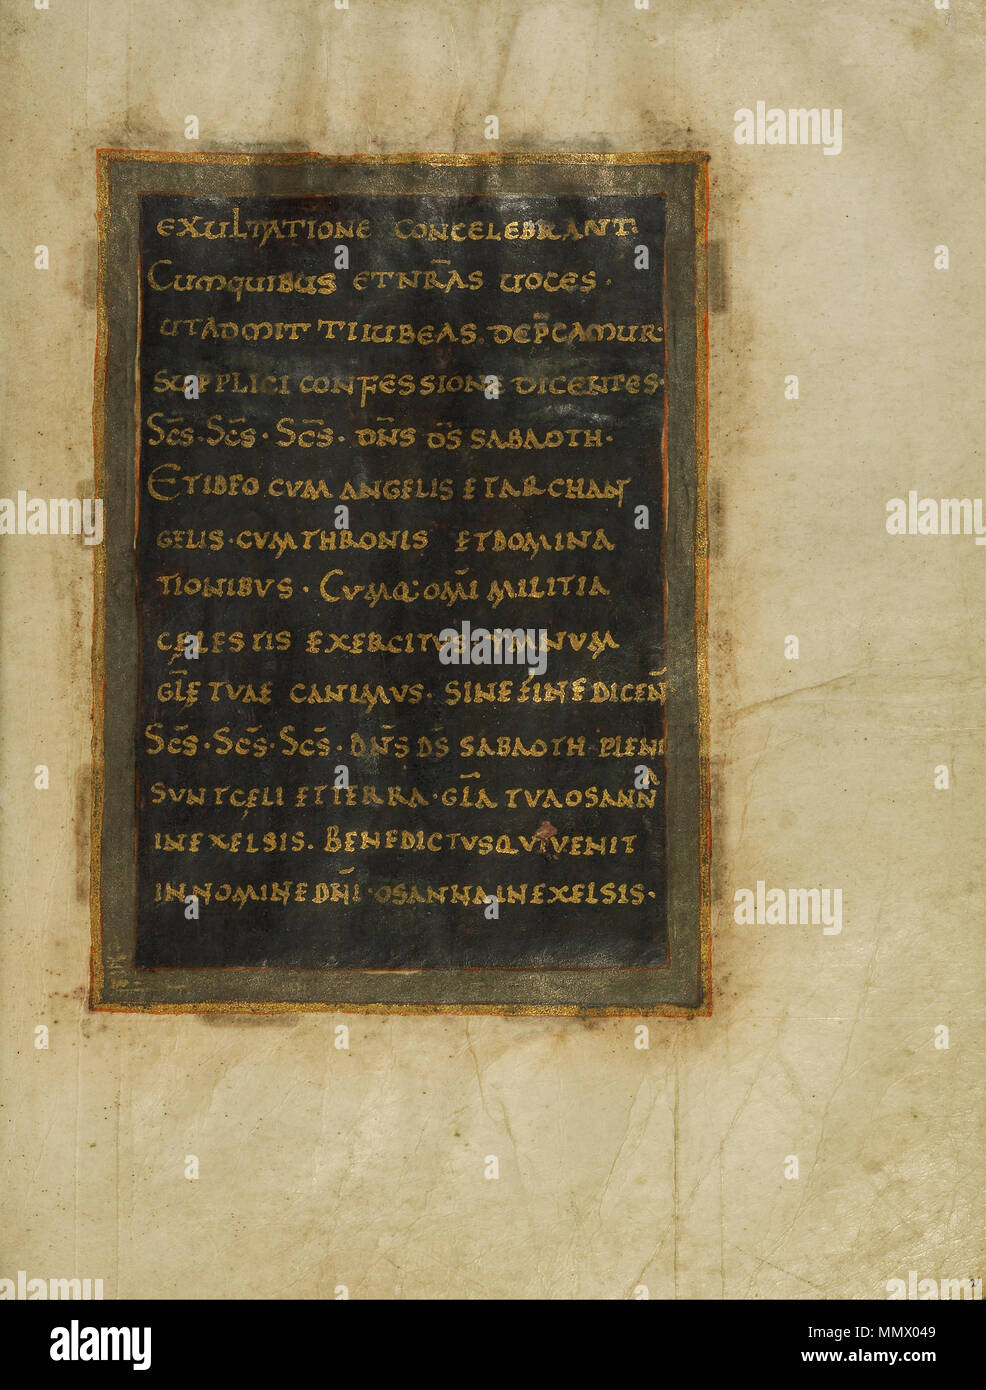 EXULTATIONE CONCELEBRANT.
CUMQUIBUS ETNR̄AS UOCES ·
UTADMITTIIUBEAS. DEP̄CAMUR·
SUPPLICI CONFESSIONE DICENTES·
SC̄S · SC̄S · SC̄S · DN̄S D̄S SABAOTH ·
ETIDEO CVM ANGELIS ETARCHAN
GELIS · CVMTHRONIS ETDOMINA
TIONIBVS · CVMQ: OM̄I MILITIA
CĘLESTIS EXERCITVS · YMNVM
GL̄Ę TVAE CANIMVS · SINE FINE DICEN̄
SC̄S · SC̄S · SC̄S · DN̄S D̄S SABAOTH · PLENI
SVNTCĘLI ETTERRA · GL̄A TVAOSANN
A
INEXELSIS. BENEDICTVSQVIVENIT
INNOMINE DN̄I · OSANNAINEXELSIS ·
alamy
alamy stock photo
MMX049
www.alamy.com